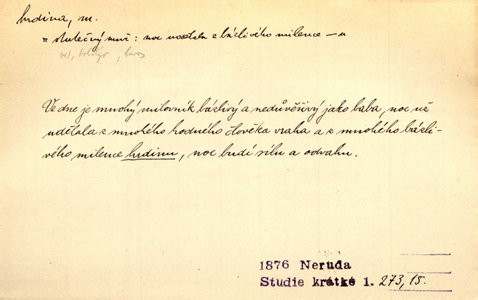 hrdina, m.
= statečný muž: noc udělala z bázlivého milence — u
rek, bohatýr, heros
Ve dne je mnohý milovník bázlivý a nedůvěřivý jako bába, noc už
udělala z mnohého hodného člověka vraha a z mnohého bázli-
vého milence hrdinu, noc budí sílu a odvahu.
1876 Neruda
Studie krátké 1. 273,15.